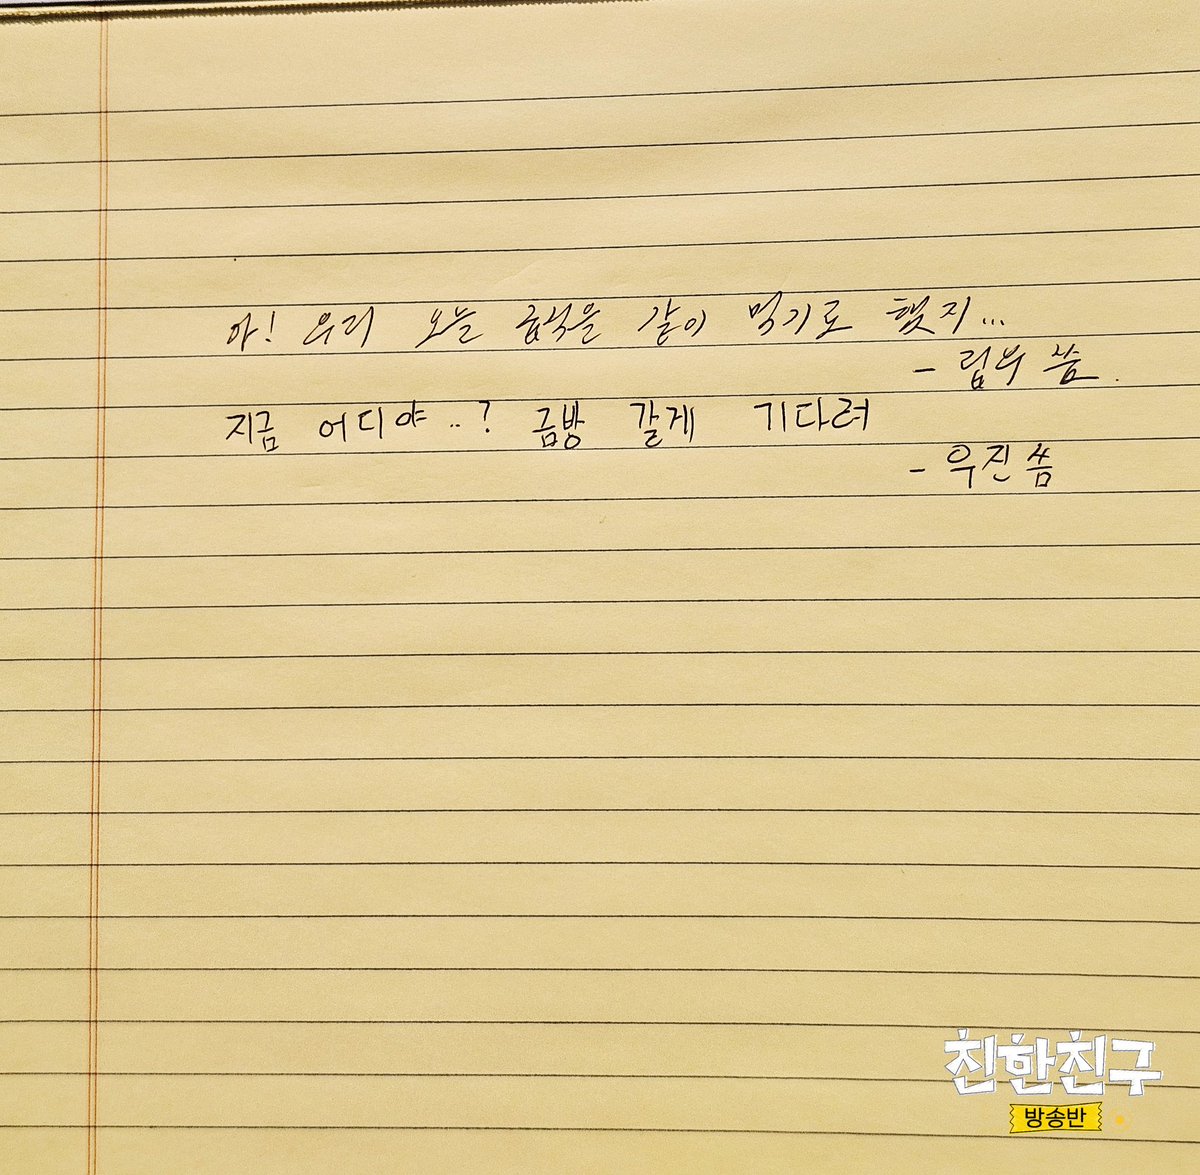 아! 우리 오늘 급식을 같이 먹기로 했지...
- 립우 씀.
지금 어디야..? 금방 갈게 기다려
- 우진 씀
친한친구
방송반